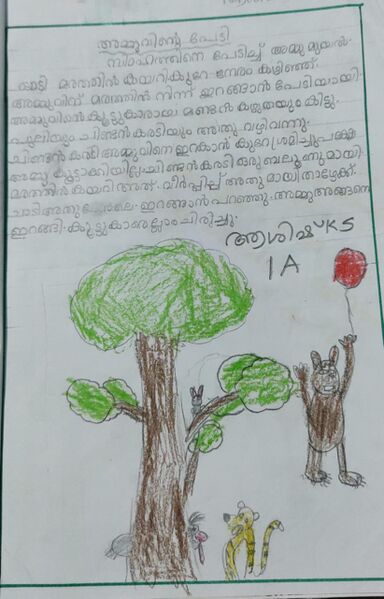 അമ്മുവിന്റെ പേടി
സിംഹത്തിനെ പേടിച്ച് അമ്മു മുയൽ
മരത്തിൽ കയറി കുറേ നേരം കഴിഞ്ഞ്.
അമ്മുവിന് മരത്തിൽ നിന്ന് ഇറങ്ങാൻ പേടിയായി.
അമ്മുവിന്റെ കൂട്ടുകാരായ മണ്ടൻ കഴുതയും കിട്ടു
പുലിയും ചിണ്ടൻ കരടിയും അതു വഴി വന്നു.
ചിണ്ടൻ കരടി അമ്മുവിനെ ഇറകാൻ കുറേ ശ്രമിച്ചു പക്ഷേ
അമ്മു കൂട്ടാക്കിയില്ല ചിണ്ടൻ കരടി ഒരു ബലൂണുമായി
മരത്തിൽ കയറി അത് വീർപ്പിച്ച് അതു മായി താഴേക്ക്
ചാടി അതു പോലെ ഇറങ്ങാൻ പറഞ്ഞു. അമ്മു അങ്ങനെ
ഇറങ്ങി. കൂട്ടുകാരെല്ലാം ചിരിച്ചു.
ആശിഷ് K S
1 A